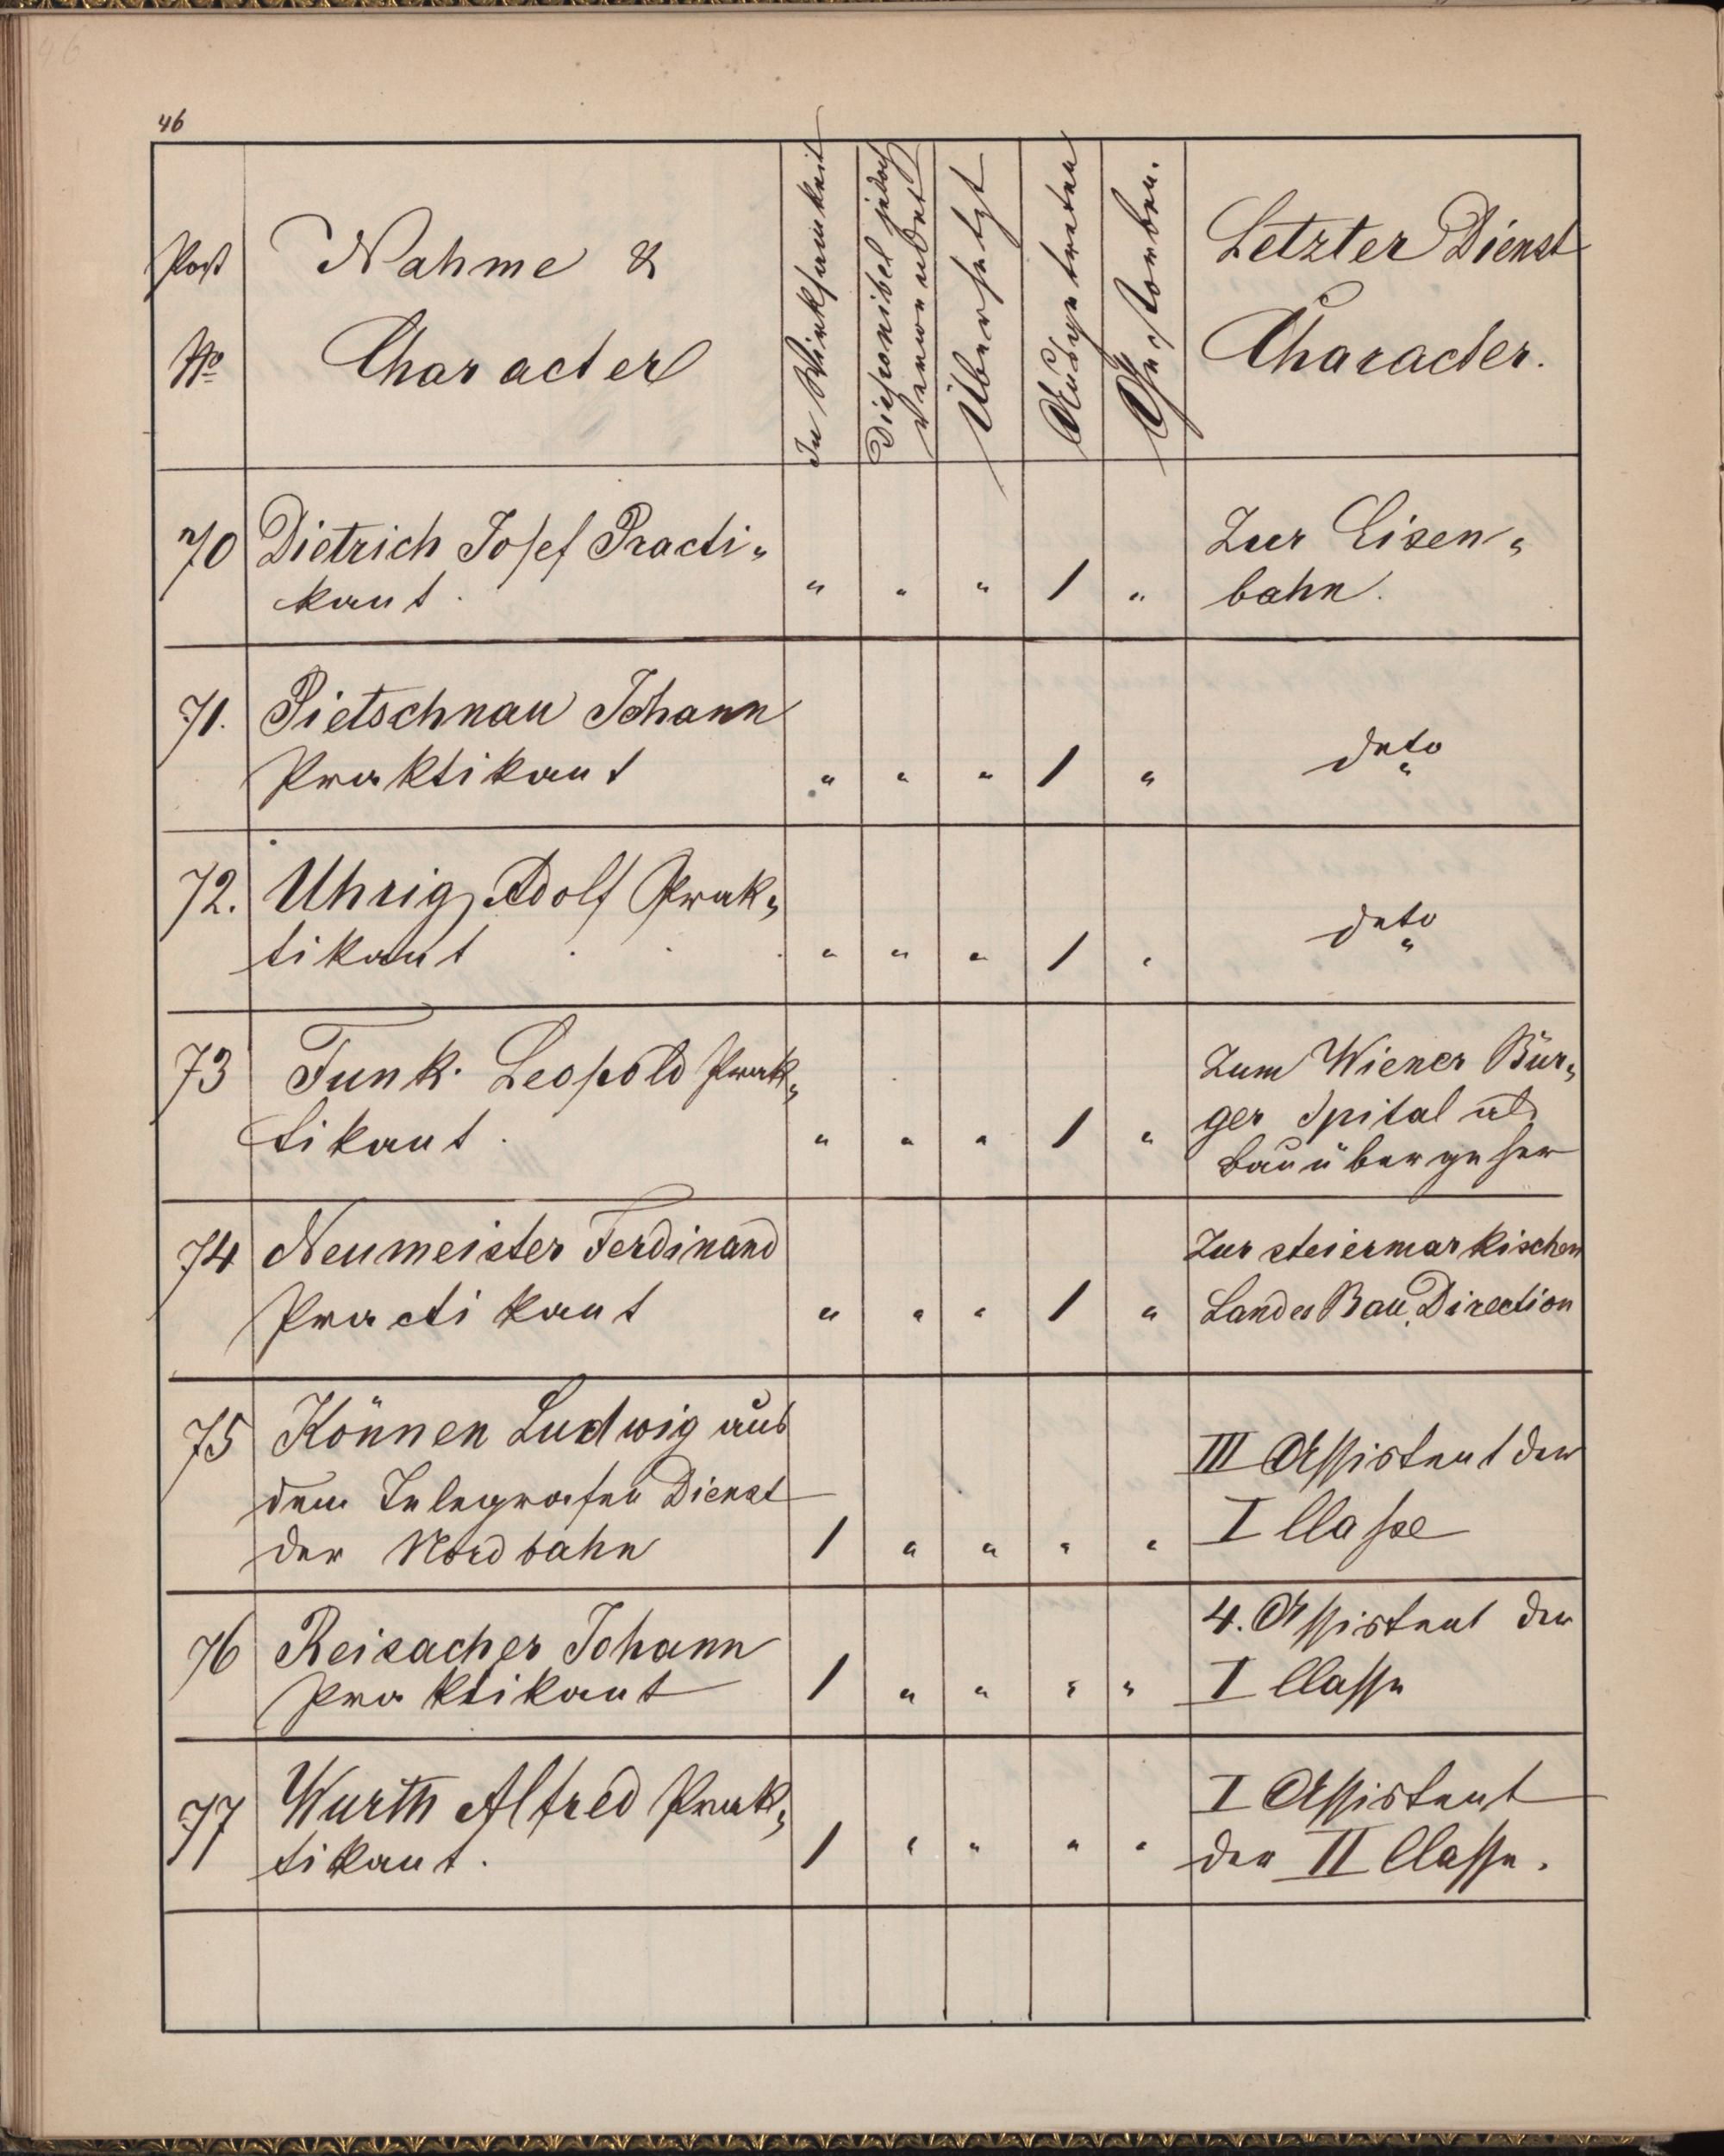 46
Post
No
Nahme &
Character
In Wirksamkeit
Disponibel jedoch
verwendet
Übersetzt
Ausgetreten
Gestorben.
Letzter Dienst
Character.
70 Dietrich Josef Practi„ Zur Eisen„
kant. " " " 1 " bahn.
71. Pietschnau Johann
Praktikant " " " 1 " deto
"
72. Uhrig Adolf Prak„
tikant " " " 1 " deto
"
73 Funk Leopold Prak„ Zum Wiener Bür„
tikant. " " " 1 " ger Spital als
Bauübergeher
74 Neumeister Ferdinand Zur steiermarkischen
Practikant " " " 1 " Landes Bau Direction
75 Können Ludwig aus
dem Telegrafen Dienst III Assistent der
der Nordbahn 1 " " " " I Classe
76 Reisacher Johann 4. Assistent der
Praktikant 1 " " " " I Classe
77 Wurth Alfred Prak„ I Assistent
tikant. 1 " " " " der II Classe.